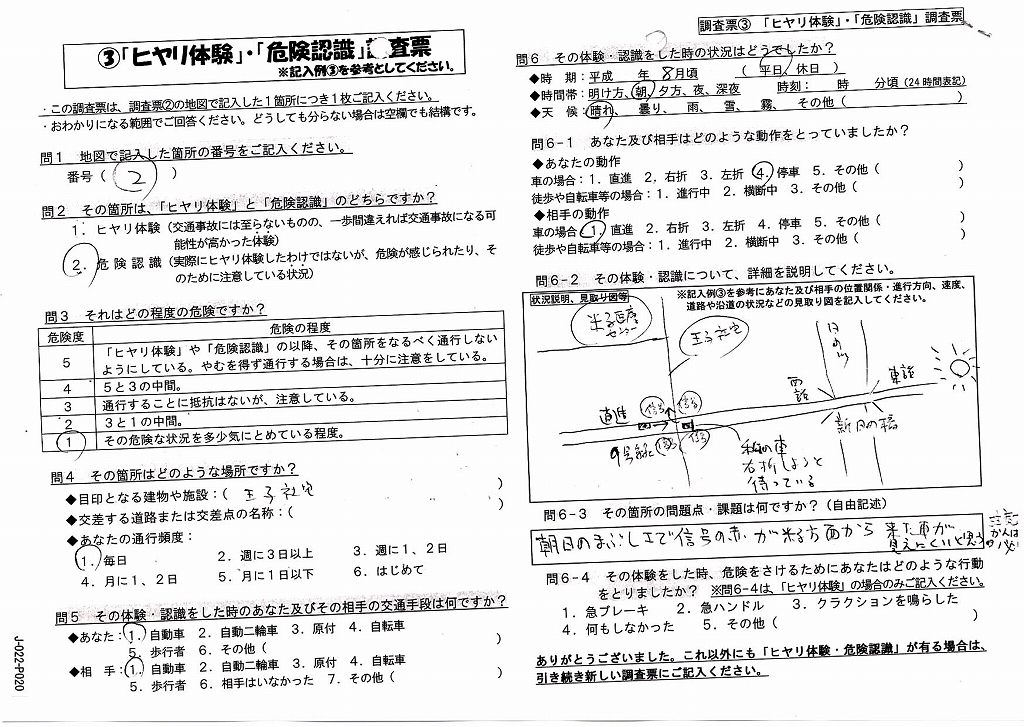 調査票③ 「ヒヤリ体験」・「危険認識」調査票
③「ヒヤリ体験」・「危険認識」調査票
※記入例③を参考としてください。
・この調査票は、調査票②の地図で記入した1箇所につき1枚ご記入ください。
・おわかりになる範囲でご回答ください。どうしても分らない場合は空欄でも結構です。
問1 地図で記入した箇所の番号をご記入ください。
番号( 2 )
問2 その箇所は、「ヒヤリ体験」と「危険認識」のどちらですか?
1.ヒヤリ体験(交通事故には至らないものの、一歩間違えれば交通事故になる可
能性が高かった体験)
2.危険認識(実際にヒヤリ体験したわけではないが、危険が感じられたり、そ
のために注意している状況)
問3 それはどの程度の危険ですか?
危険度 危険の程度
5 「ヒヤリ体験」や「危険認識」の以降、その箇所をなるべく通行しない
ようにしている。やむを得ず通行する場合は、十分に注意をしている。
4 5と3の中間。
3 通行することに抵抗はないが、注意している。
2 3と1の中間。
1 その危険な状況を多少気にとめている程度。
問4 その箇所はどのような場所ですか?
◆目印となる建物や施設:( 王子社宅 )
◆交差する道路または交差点の名称:( )
◆あなたの通行頻度:
1.毎日 2.週に3日以上 3.週に1、2日
4.月に1、2日 5.月に1日以下 6.はじめて
問5 その体験・認識をした時のあなた及びその相手の交通手段は何ですか?
◆あなた:1.自動車 2.自動二輪車 3.原付 4.自転車
5.歩行者 6.その他( )
◆相 手:1.自動車 2.自動二輪車 3.原付 4.自転車
5.歩行者 6.相手はいなかった 7.その他( )
J-022-P020
問6 その体験・認識をした時の状況はどうでしたか?
◆時 期:平成 年 8月頃 ( 平日、休日 )
◆時間帯:明け方、朝、夕方、夜、深夜 時刻: 時 分頃(24時間表記)
◆天 候:晴れ、曇り、雨、雪、霧、その他( )
問6-1 あなた及び相手はどのような動作をとっていましたか?
◆あなたの動作
車の場合:1.直進 2.右折 3.左折 4.停車 5.その他( )
徒歩や自転車等の場合:1.進行中 2.横断中 3.その他( )
◆相手の動作
車の場合:1.直進 2.右折 3.左折 4.停車 5.その他( )
徒歩や自転車等の場合:1.進行中 2.横断中 3.その他( )
問6-2 その体験・認識について、詳細を説明してください。
状況説明、見取り図等
※記入例③を参考にあなた及び相手の位置関係・進行方向、速度、
道路や沿道の状況などの見取り図を記入してください。
米子医療
センター
王子社宅
日
の
川
西詰
東詰
直進
信号
信号
新日の橋
9号線
信号
信号
私の車
右折しようと
待っている
問6-3 その箇所の問題点・課題は何ですか?(自由記述)
朝日のまぶしさで信号の赤が米子方面から来た車が
見えにくいと思う
注意
かんばん
必
問6-4 その体験をした時、危険をさけるためにあなたはどのような行動
をとりましたか? ※問6-4は、「ヒヤリ体験」の場合のみご記入ください。
1.急ブレーキ 2.急ハンドル 3.クラクションを鳴らした
4.何もしなかった 5.その他( )
ありがとうございました。これ以外にも「ヒヤリ体験・危険認識」が有る場合は、
引き続き新しい調査票にご記入ください。